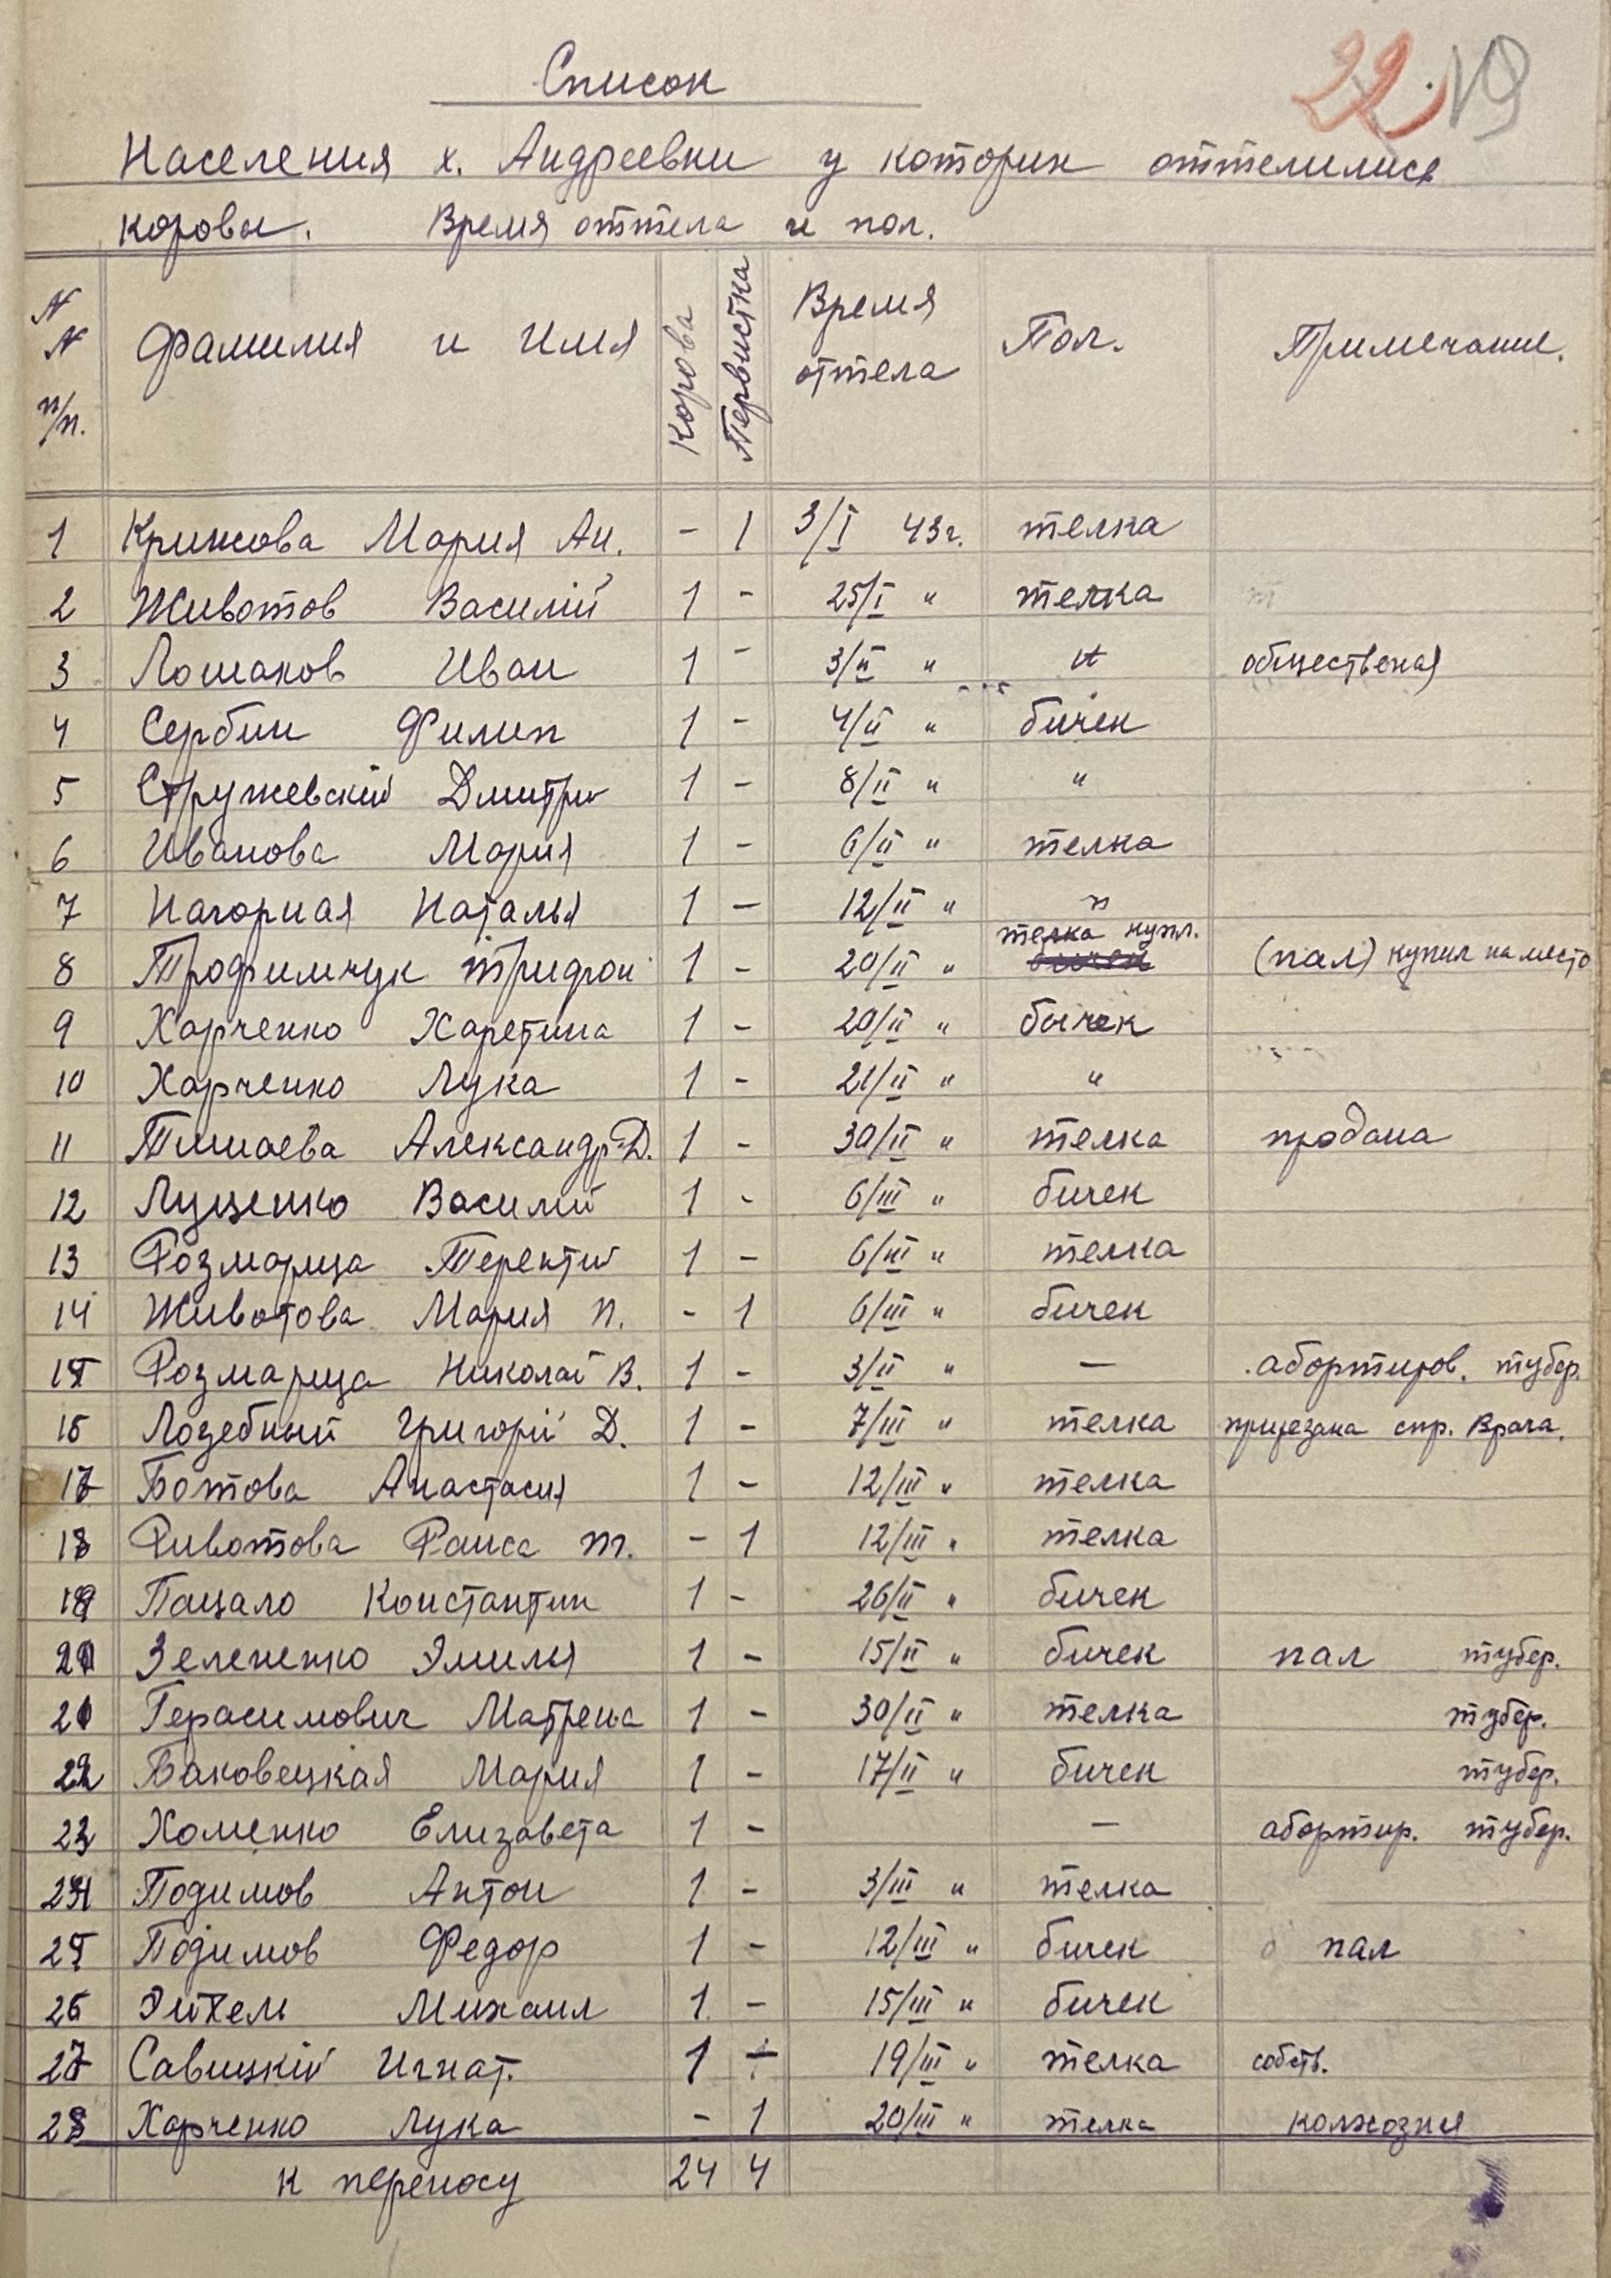 22. 19
Список
Населения х. Андреевки у которих оттелились
коровы. Время оттела и пол.
N N п/п. Фамилия и Имя Корова Первистка Время оттела Пол. Примечание.
1 Крижова Мария Ан. - 1 3/I 43г. телка
2 Животов Василій 1 - 25/I " телка
3 Лошаков Иван 1 - 3/II " " общественая
4 Сербин Филип 1 - 4/II " бичек
5 Стружевскій Дмитри 1 - 8/II " "
6 Иванова Мария 1 - 6/II " телка
7 Нагорная Наталья 1 - 12/II " "
телка купл.
8 Трофимчук Тридфон 1 - 20/II " бичек (пал) купил на место
9 Харченко Харетина 1 - 20/II " бычек
10 Харченко Лука 1 - 21/II " "
11 Тимаева Александр. Д. 1 - 30/II " телка продана
12 Луценко Василий 1 - 6/III " бичек
13 Розмарица Терентий 1 - 6/III " телка
14 Животова Мария П. - 1 6/III " бичек
15 Розмарица Николай В. 1 - 3/II " — абортиров. тубер.
16 Лозебный Григорій Д. 1 - 7/III " телка прирезана спр. Врача.
17 Ботова Анастасия 1 - 12/III " телка
18 Раиса т. - 1 12/III " телка
19 Пацало Константин 1 - 26/II " бичек
20 Зелененко Эмилия 1 - 15/II " бичек пал тубер.
21 Герасимович Матрена 1 - 30/II " телка тубер.
22 Баковецкая Мария 1 - 17/II " бичек тубер.
23 Хоменко Елизавета 1 - — абортир. тубер.
24 Подимов Антон 1 - 3/III " телка
25 Подимов Федор 1 - 12/III " бичек пал
26 Михаил 1 - 15/III " бичек
27 Савицкій Игнат. 1 - 19/III " телка собств.
28 Харченко Лука - 1 20/III " телка колхозня
к переносу 24 4